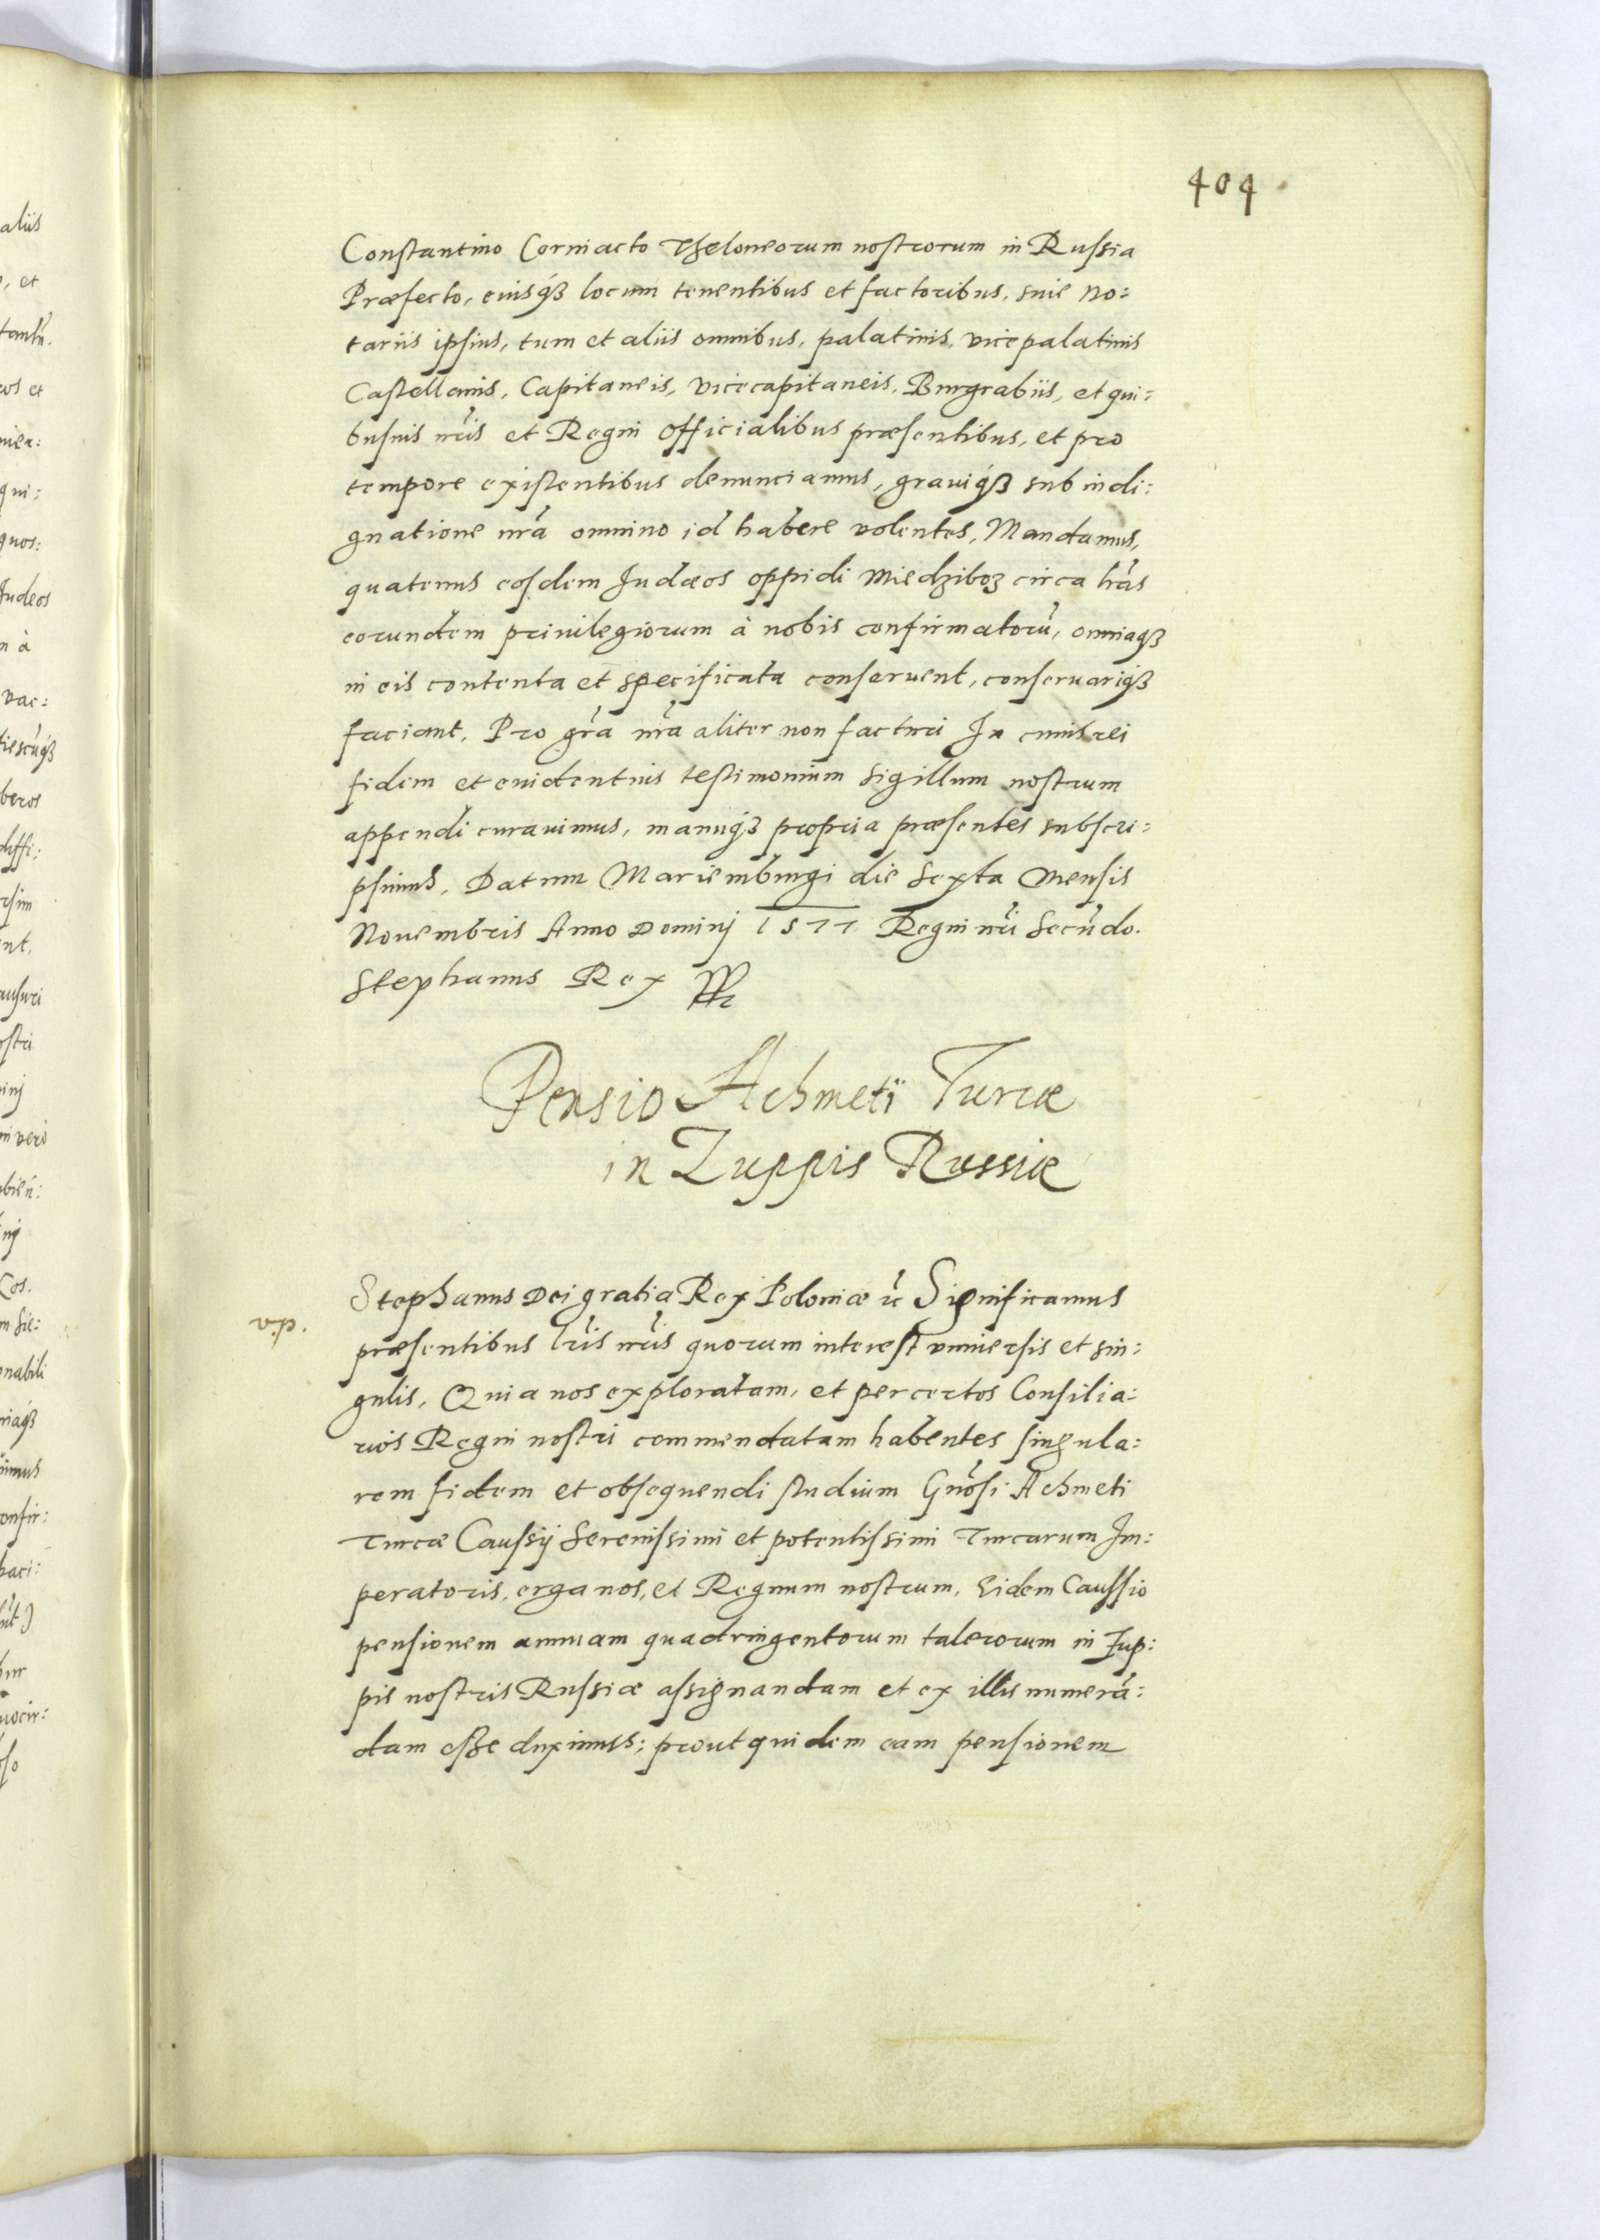 404
Constantino Corniacto Theloneorum nostrorum in Russia
Præfecto, eiusq3 locum tenentibus et factoribus, siue No:
tariis ipsius, tum et aliis omnibus, palatinis, vicepalatinis
Castellanis, Capitaneis, vicecapitaneis, Burgrabiis, et qui:
busuis nris et Regni officialibus præsentibus, et pro
tempore existentibus denunciamus, grauiq3 sub indi:
gnatione nra omnino id habere volentes, Mandamus,
quatenus eosdem Judæos oppidi Miedziboz circa hras
eorundem priuilegiorum à nobis confirmatorũ, omniaq3
in eis contenta et specificata conseruent, conseruariq3
faciant, Pro gra nra aliter non facturi In cuius rei
fidem et euidentius testimonium Sigillum nostrum
appendi curauimus, manuq3 propria præsentes subscri:
psimus, Datum Mariemburgi die Sexta Mensis
Nouembris Anno Dominj 1577 Regni nri Secũdo.
Stephanus Rex
Pensio Achmeti Turcæ
in Zuppis Russiæ
v.p.
Stephanus Dei gratia Rex Poloniæ ĩc Significamus
præsentibus lris nris quorum interest vniuersis et sin:
gulis, Quia nos exploratam, et per certos Consilia:
rios Regni nostri commendatam habentes singula:
rem fidem et obsequendi studium Gnosi Achmeti
Turcæ Caussij Serenissimi et potentissimi Turcarum Im:
peratoris, erga nos, et Regnum nostrum, Eidem Caussio
pensionem annuam quadringentorum talerorum in Zup:
pis nostris Russiæ assignandam et ex illis numerã:
dam esse duximus; prout quidem eam pensionem